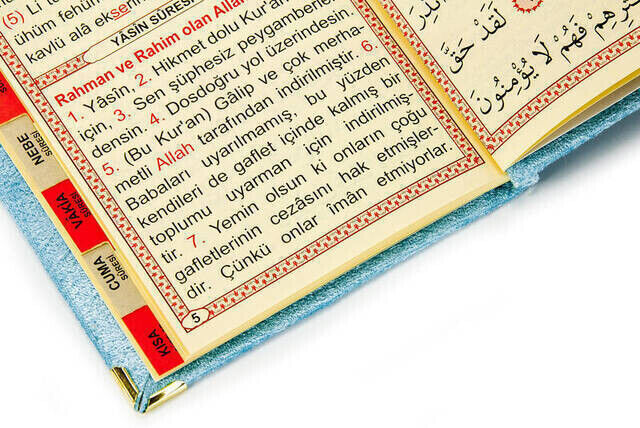 (5) Li
ühüm
kavlü alâ
YÂSİN SÛRESİ
Rahman ve Rahim olan Allah
1. Yâsîn, 2. Hikmet dolu Kur'an
için, 3. Sen şüphesiz peygamberler
densin. 4. Dosdoğru yol üzerindesin.
5. (Bu Kur'an) Gâlip ve çok merha-
metli Allah tarafından indirilmiştir. 6.
Babaları uyarılmamış, bu yüzden
kendileri de gaflet içinde kalmış bir
toplumu uyarman için indirilmiş-
tir. 7. Yemin olsun ki onların çoğu
gafletlerinin cezâsını hak etmişler-
dir. Çünkü onlar imân etmiyorlar.
5
NEBE
SÛRESİ
VÂKIA
SÛRESİ
CUMA
SÛRESİ
KISA
لَقَدْ حَقَّ
فَهُمْ لَا يُؤْمِنُونَ